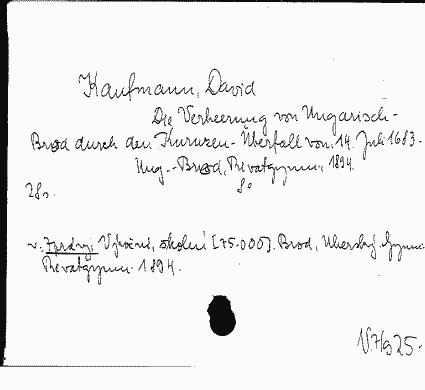 Kaufmann, David
Die Verheerung von Ungarisch-
Brod durch den Kuruzen-Überfall vom 14. Juli 1683.
Ung.-Brod, Privatgymn. 1894.
8°
28 s.
v. Zprávy: Výroční, školní [75.000]. Brod, Uherský. Gymn.
Privatgymn. 1894.